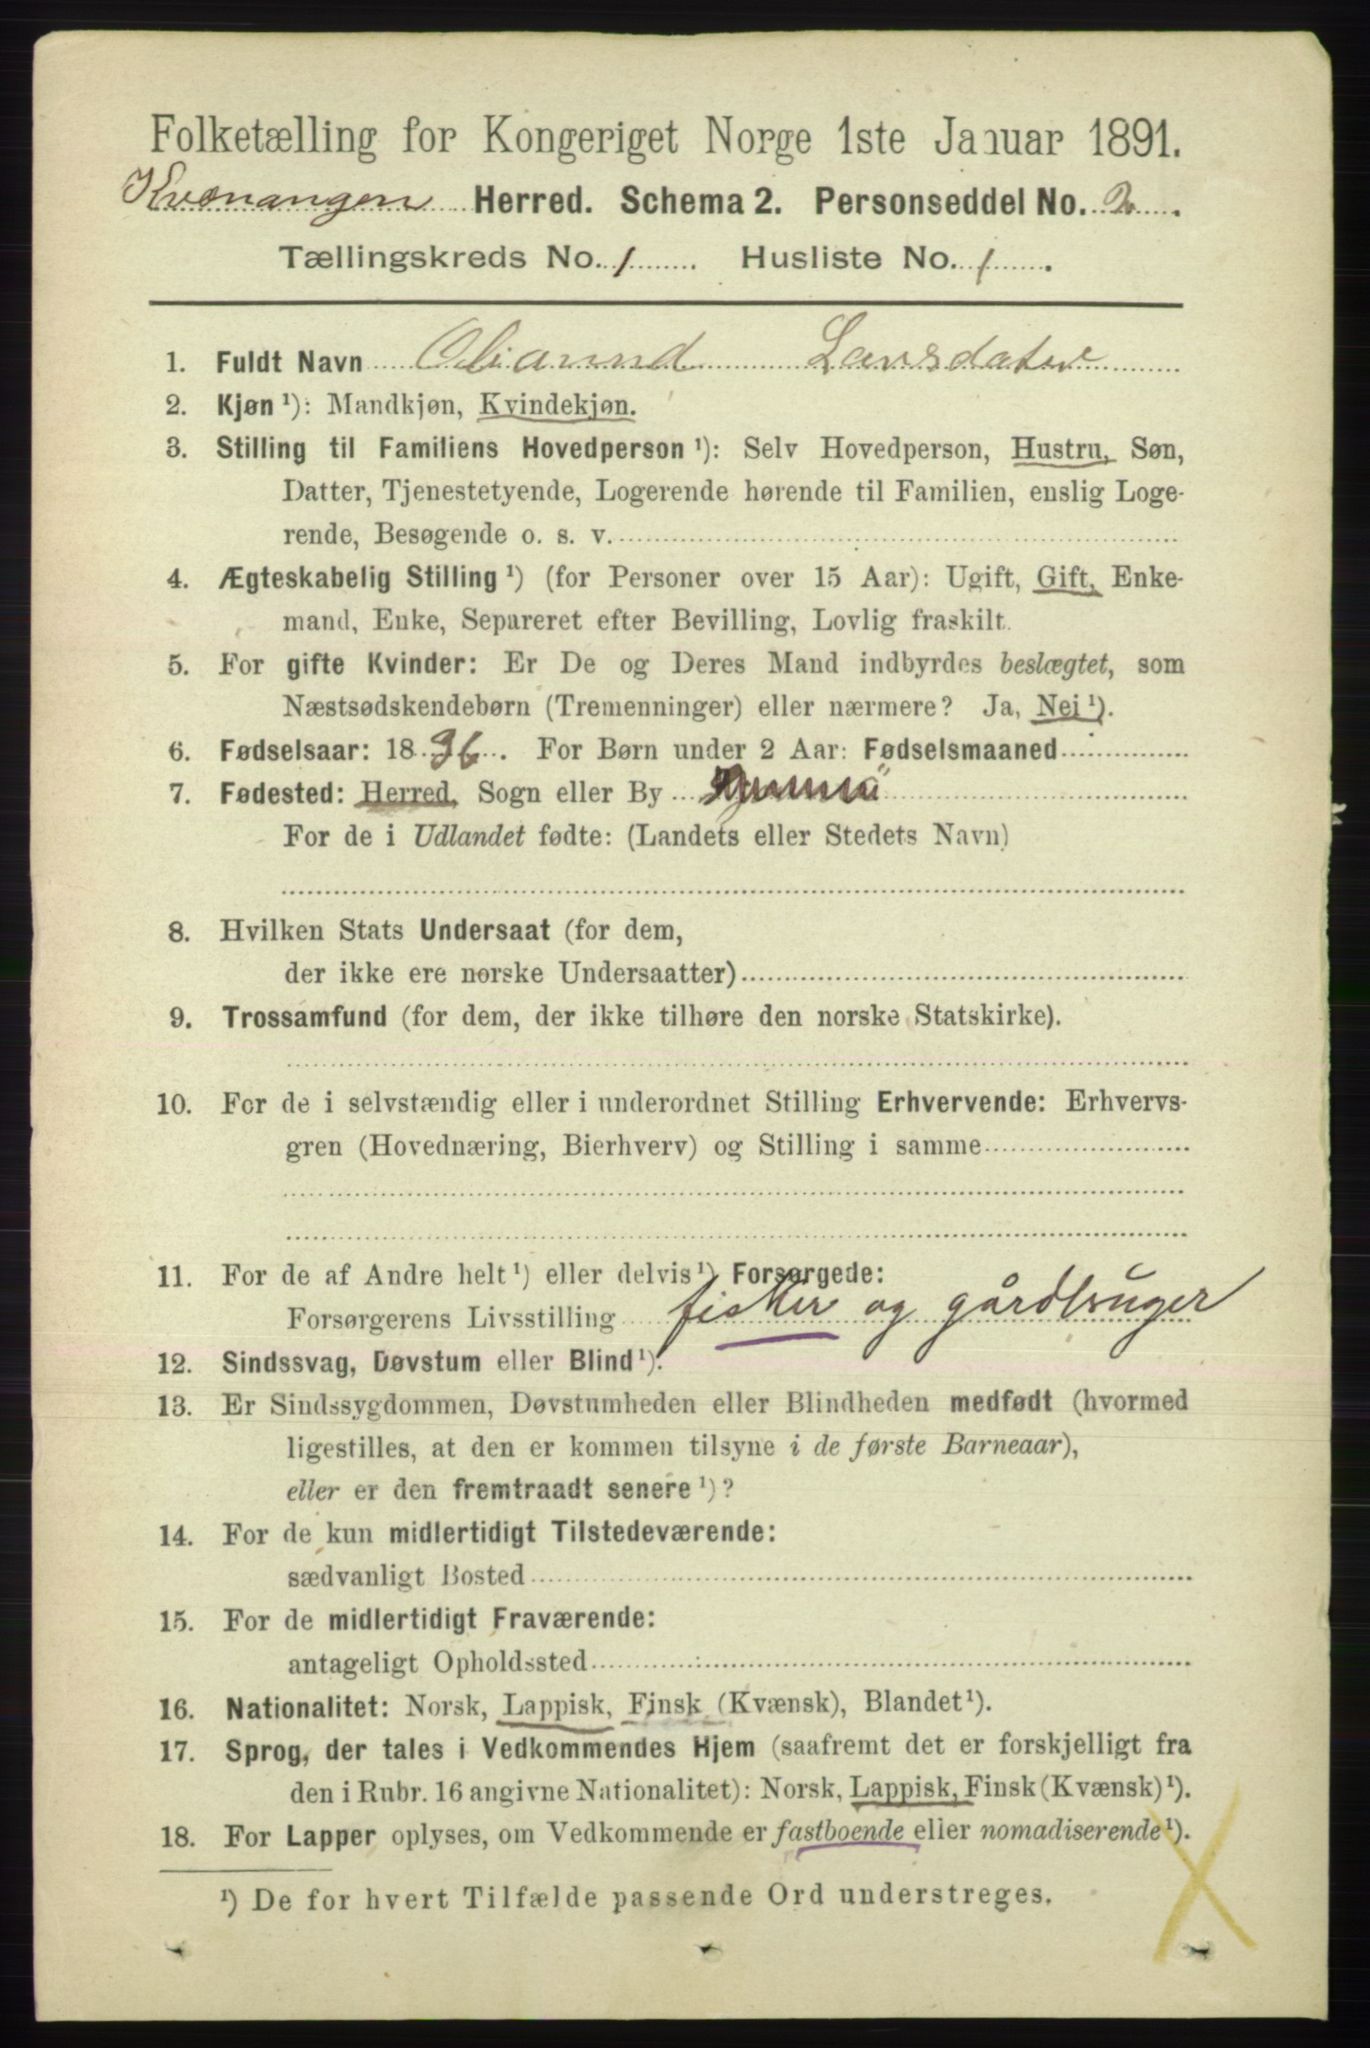 Folketælling for Kongeriget Norge 1ste Januar 1891.
Kvænangen Herred. Schema 2. Personseddel No. 2.
Tællingskreds No. 1 Husliste No. 1.
1. Fuldt Navn Larsdater
2. Kjøn ¹): Mandkjøn, Kvindekjøn.
3. Stilling til Familiens Hovedperson ¹): Selv Hovedperson, Hustru, Søn,
Datter, Tjenestetyende, Logerende hørende til Familien, enslig Loge-
rende, Besøgende o. s. v.
4. Ægteskabelig Stilling ¹) (for Personer over 15 Aar): Ugift, Gift, Enke-
mand, Enke, Separeret efter Bevilling, Lovlig fraskilt.
5. For gifte Kvinder: Er De og Deres Mand indbyrdes beslægtet, som
Næstsødskendebørn (Tremenninger) eller nærmere? Ja, Nei ¹).
6. Fødselsaar: 1836. For Børn under 2 Aar: Fødselsmaaned
7. Fødested: Herred, Sogn eller By
For de i Udlandet fødte: (Landets eller Stedets Navn)
8. Hvilken Stats Undersaat (for dem,
der ikke ere norske Undersaatter)
9. Trossamfund (for dem, der ikke tilhøre den norske Statskirke).
10. For de i selvstændig eller i underordnet Stilling Erhvervende: Erhvervs-
gren (Hovednæring, Bierhverv) og Stilling i samme
11. For de af Andre helt ¹) eller delvis ¹) Forsørgede:
Forsørgerens Livsstilling fisker og gårdbruger
12. Sindssvag, Døvstum eller Blind ¹).
13. Er Sindssygdommen, Døvstumheden eller Blindheden medfødt (hvormed
ligestilles, at den er kommen tilsyne i de første Barneaar),
eller er den fremtraadt senere ¹)?
14. For de kun midlertidigt Tilstedeværende:
sædvanligt Bosted
15. For de midlertidigt Fraværende:
antageligt Opholdssted
16. Nationalitet: Norsk, Lappisk, Finsk (Kvænsk), Blandet ¹).
17. Sprog, der tales i Vedkommendes Hjem (saafremt det er forskjelligt fra
den i Rubr. 16 angivne Nationalitet): Norsk, Lappisk, Finsk (Kvænsk) ¹).
18. For Lapper oplyses, om Vedkommende er fastboende eller nomadiserende ¹).
¹) De for hvert Tilfælde passende Ord understreges.